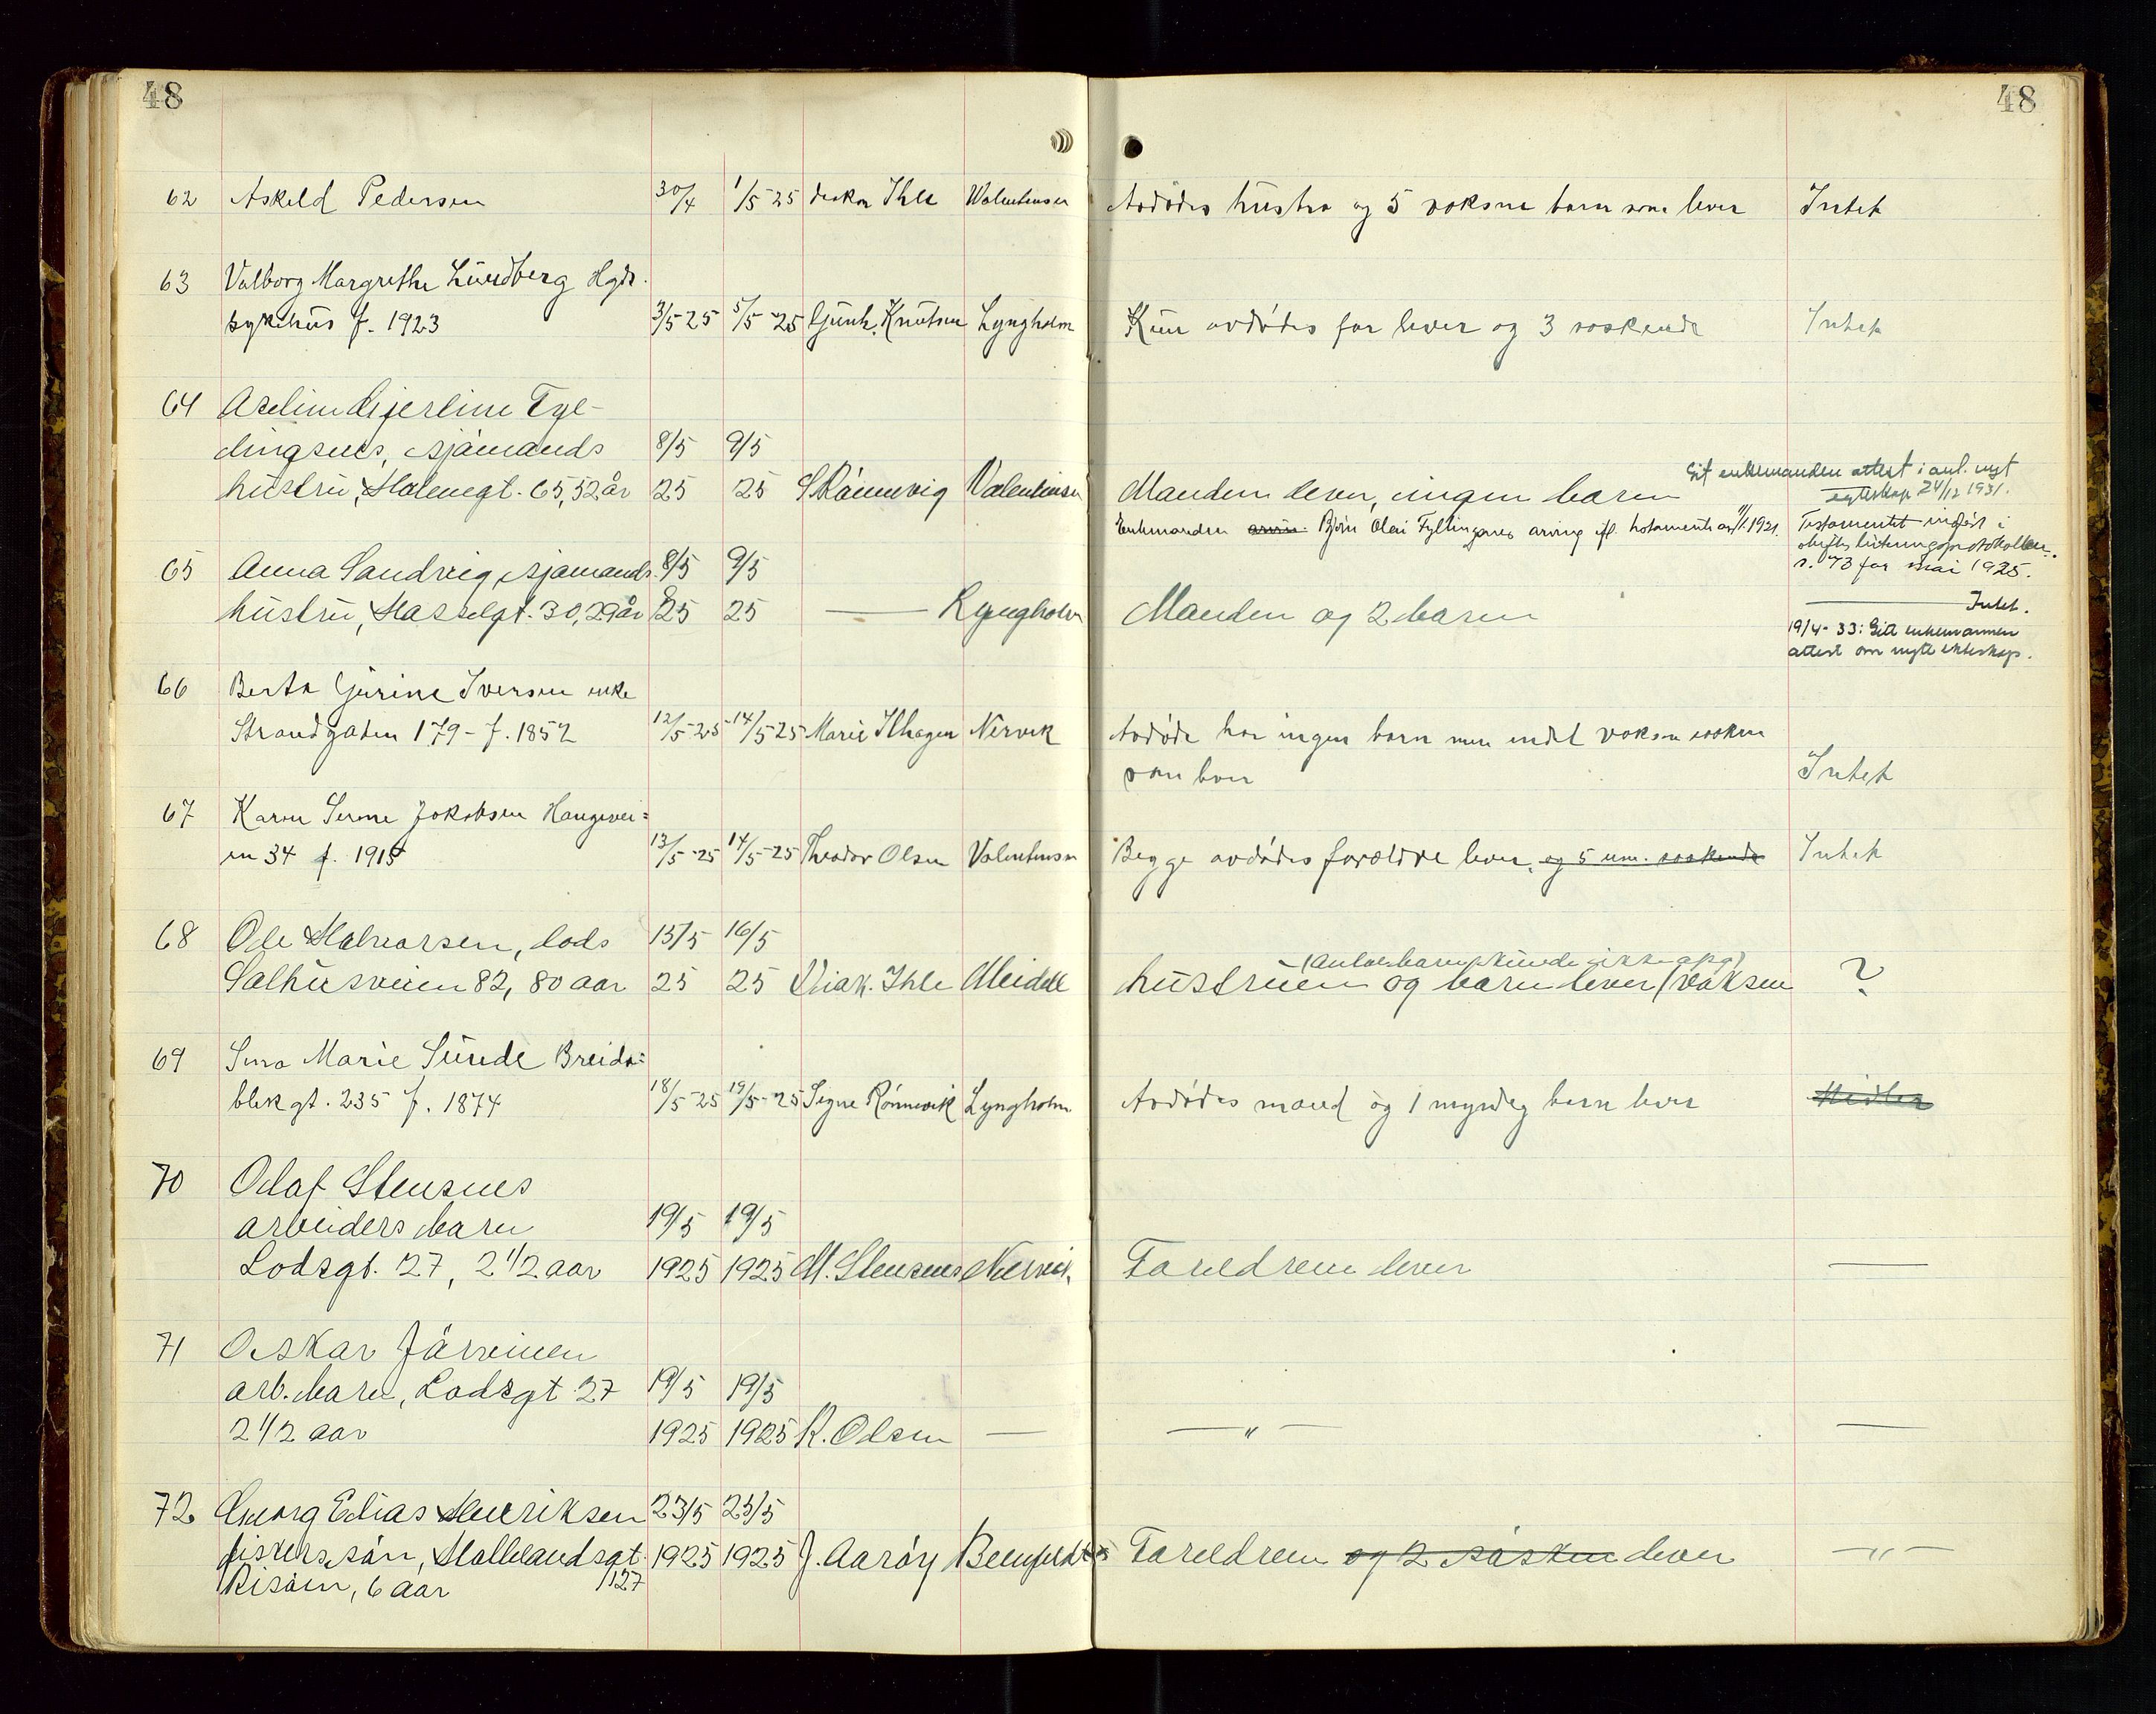 48
48
62 Askild Pedersen 30/4 1/5-25 diakon Ihle Valentinsen Avdødes hustru og 5 voksne barn som lever Intet
63 Valborg Margrethe Lundberg Hgds.
sykehus f. 1923 3/5-25 5/5-25 Gunh. Knutsen Lyngholm Kun avdødes far lever og 3 søskende Intet
64 Gjertine Tyl-
lingsnes, sjømands 8/5 9/5
hustru, Holmegt. 65, 52 år 25 25 S Rønnevig Valentinsen Manden lever, ingen barn Git enkemanden attest i anl. nyt
egteskap 24/12 1931.
Enkemanden Bjørn Olai Fyllingsnes arving ifl. testamente av 11/1. 1921. Testamentet indført i
s. 73 for mai 1925.
65 Anna Sandvig, sjømands 8/5 9/5
hustru, Hasselgt. 30, 29 år 25 25 — Lyngholm Manden og 2 barn — Intet.
19/4-33: Gitt enkemannen
attest om nytt ekteskap.
66 Berta Gurine Iversen enke
Strandgaten 179 - f. 1852 12/5-25 14/5-25 Marie Ilhagen Nervik Avdøde har ingen barn men endel voksne søsken
som lever Intet
67 Karen Serine Jokobsen Haugevei=
en 34 f. 1915 13/5-25 14/5-25 Theodor Olsen Valentinsen Begge avdødes forældre lever, og 5 um. søskende Intet
68 Ole Halvorsen, lods 15/5 16/5
(antal barn kunde ikke opg)
Salhusveien 82, 80 aar 25 25 Diak. Ihle Meidell hustruen og barn lever (voksen ?
69 Marie Sunde Breida=
blik gt. 235 f. 1874 18/5-25 19/5-25 Signe Rønnevik Lyngholm Avdødes mand og 1 myndig barn lever Midler
70 Olaf Stensnes
arbeiders barn 19/5 19/5
Lodsgt. 27, 2 1/2 aar 1925 1925 M. Stensnes Nervik. Foreldrene lever —
71 Oskar Järvinen
arb. barn, Lodsgt 27 19/5 19/5
2 1/2 aar 1925 1925 R. Olsen — — " — —
72 Georg Elias Henriksen 23/5 25/5
fiskers søn, Hallelandsgt. 1925 1925 J. Aarøy Foreldrene og 2 søsken lever — " —
Risøen, 6 aar /127